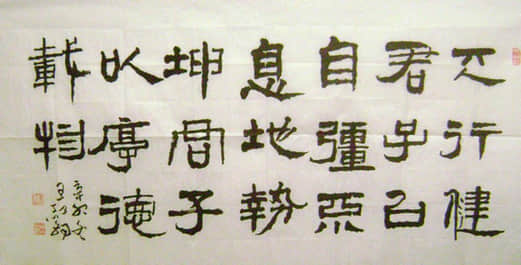 天行健
君子以
自彊不
息地勢
坤君子
以厚德
載物
辛卯冬